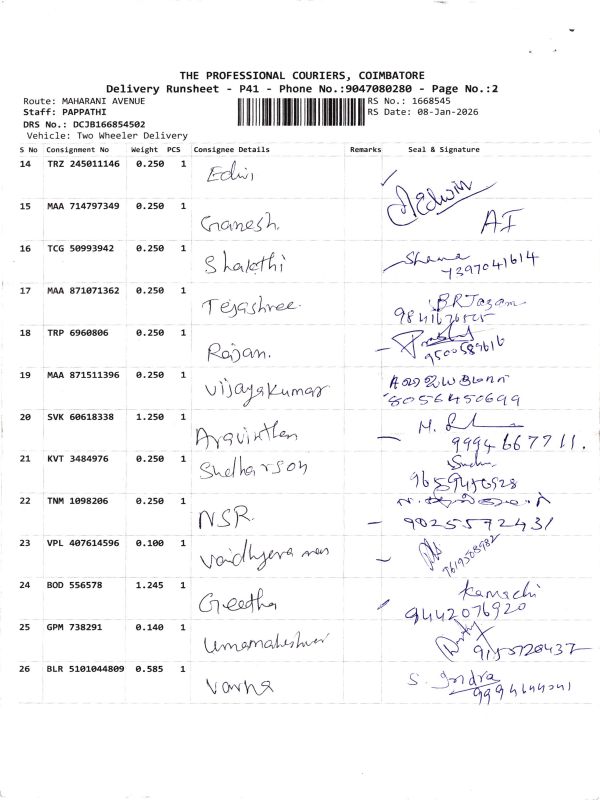 THE PROFESSIONAL COURIERS, COIMBATORE
Delivery Runsheet - P41 - Phone No.:9047080280 - Page No.:2
Route: MAHARANI AVENUE RS No.: 1668545
Staff: PAPPATHI RS Date: 08-Jan-2026
DRS No.: DCJB166854502
Vehicle: Two Wheeler Delivery
S No Consignment No Weight PCS Consignee Details Remarks Seal & Signature
14 TRZ 245011146 0.250 1 Edwi Edwin
15 MAA 714797349 0.250 1 Ganesh. AI
16 TCG 50993942 0.250 1 Shakthi
7397041614
17 MAA 871071362 0.250 1 Tejashree.
18 TRP 6960806 0.250 1 Rajan.
9500589616
19 MAA 871511396 0.250 1 Vijayakumar
8056450699
20 SVK 60618338 1.250 1 Aravinthan
9994667711.
21 KVT 3484976 0.250 1 Sudharson
22 TNM 1098206 0.250 1 NSR.
9025572431
23 VPL 407614596 0.100 1
24 BOD 556578 1.245 1 Geetha Kamachi
9442076920
25 GPM 738291 0.140 1 Umamaheshwar
26 BLR 5101044809 0.585 1 Varna S. Indra